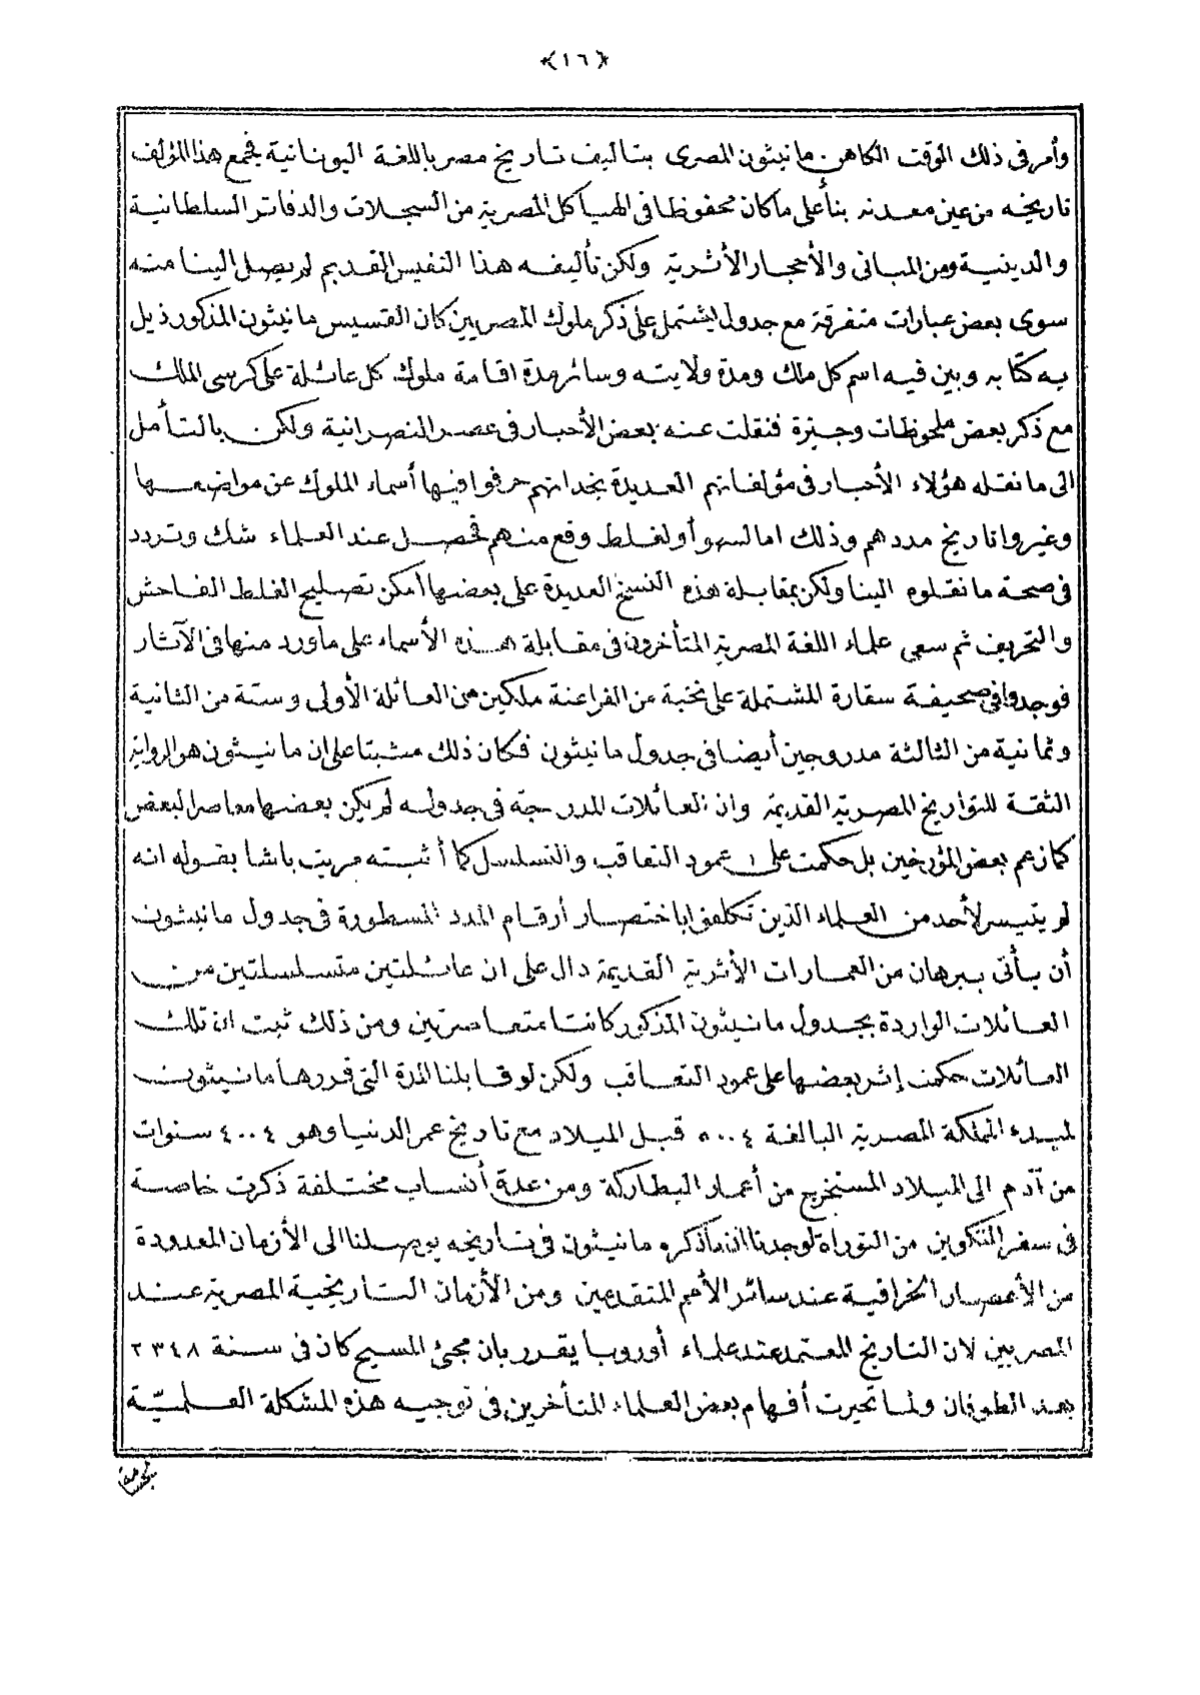 ﴿١٦﴾
وأمر فى ذلك الوقت الكاهن مانيثون المصرى بتاليف تاريخ مصر باللغة اليونانية فجمع هذا المؤلف
تاريخه من عين معدنه بنأ على ما كان محفوظا فى الهياكل المصرية من السجلات والدفاتر السلطانية
والدينية ومن المبانى والأحجار الأثرية ولكن تأليفه هذا النفيس القديم لم يصل الينا منه
سوى بعض عبارات متفرقة مع جدول يشتمل على ذكر ملوك المصريين كان القسيس مانيثون المذكور ذيل
به كتابه وبين فيه اسم كل ملك ومدة ولايته وسائر مدة اقامة ملوك كل عائلة على كرسى الملك
مع ذكر بعض ملحوظات وجيزة فنقلت عنه بعض الأحبار فى عصر النصرانية ولكن بالتأمل
الى ما نقله هؤلاء الأحبار فى مؤلفاتهم العديدة نجد انهم حرفوا فيها أسماء الملوك عن مواضعها
وغيروا تاريخ مددهم وذلك اما لسهو أو لغلط وقع منهم فحصل عند العلماء شك وتردد
فى صحة ما نقلوه الينا ولكن بمقابلة هذه النسخ العديدة على بعضها أمكن تصليح الغلط الفاحش
والتحريف ثم سعى علماء اللغة المصرية المتأخرون فى مقابلة هذه الأسماء على ماورد منها فى الآثار
فوجدوا فى صحيفة سقارة المشتملة على نخبة من الفراعنة ملكين من العائلة الأولى وستة من الثانية
وثمانية من الثالثة مدروجين أيضا فى جدول مانيثون فكان ذلك مثبتا على ان مانيثون هو الرواية
الثقة للتواريخ المصرية القديمة وان العائلات المدرجة فى جدوله لم يكن بعضها معاصرا لبعض
كما زعم بعض المؤرخين بل حكمت على عمود التعاقب والتسلسل كما أثبته مريت باشا بقوله انه
لم يتيسر لأحد من العلماء الذين تكلفوا باختصار أرقام المدد المسطورة فى جدول مانيثون
أن يأتى ببرهان من العمارات الأثرية القديمة دال على ان عائلتين متسلسلتين من
العائلات الواردة بجدول مانيثون المذكور كانتا متعاصرتين ومن ذلك ثبت ان تلك
العائلات حكمت إثر بعضها على عمود التعاقب ولكن لو قابلنا المدة التى قررها مانيثون
لمبدء المملكة المصرية البالغة ٥٠٠٤ قبل الميلاد مع تاريخ عمر الدنيا وهو ٤٠٠٤ سنوات
من آدم الى الميلاد المستخرج من أعمار البطاركة ومن عدة أنساب مختلفة ذكرت خاصة
فى سفر التكوين من التوراة لوجدنا ان ماذكره مانيثون فى تاريخه يوصلنا الى الأزمان المعدودة
من الأعصار الخرافية عند سائر الأمم المتقدمين ومن الأزمان التاريخية المصرية عند
المصريين لان التاريخ المعتمد عند علماء أوروبا يقرر بان مجئ المسيح كان فى سنة ٢٣٤٨
بعد الطوفان ولما تحيرت أفهام بعض العلماء المتأخرين فى توجيه هذه المشكلة العلميّة